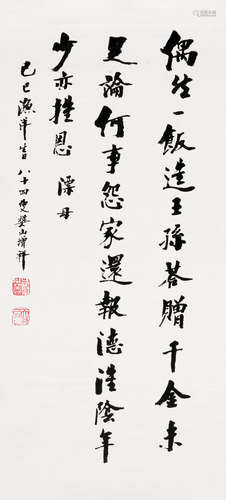 偶然一飯王孫荅贈千金未
足論何事怨家還報德淮陰年
少亦推恩 漂母
己巳漁洋生日八十四叟樊山增祥